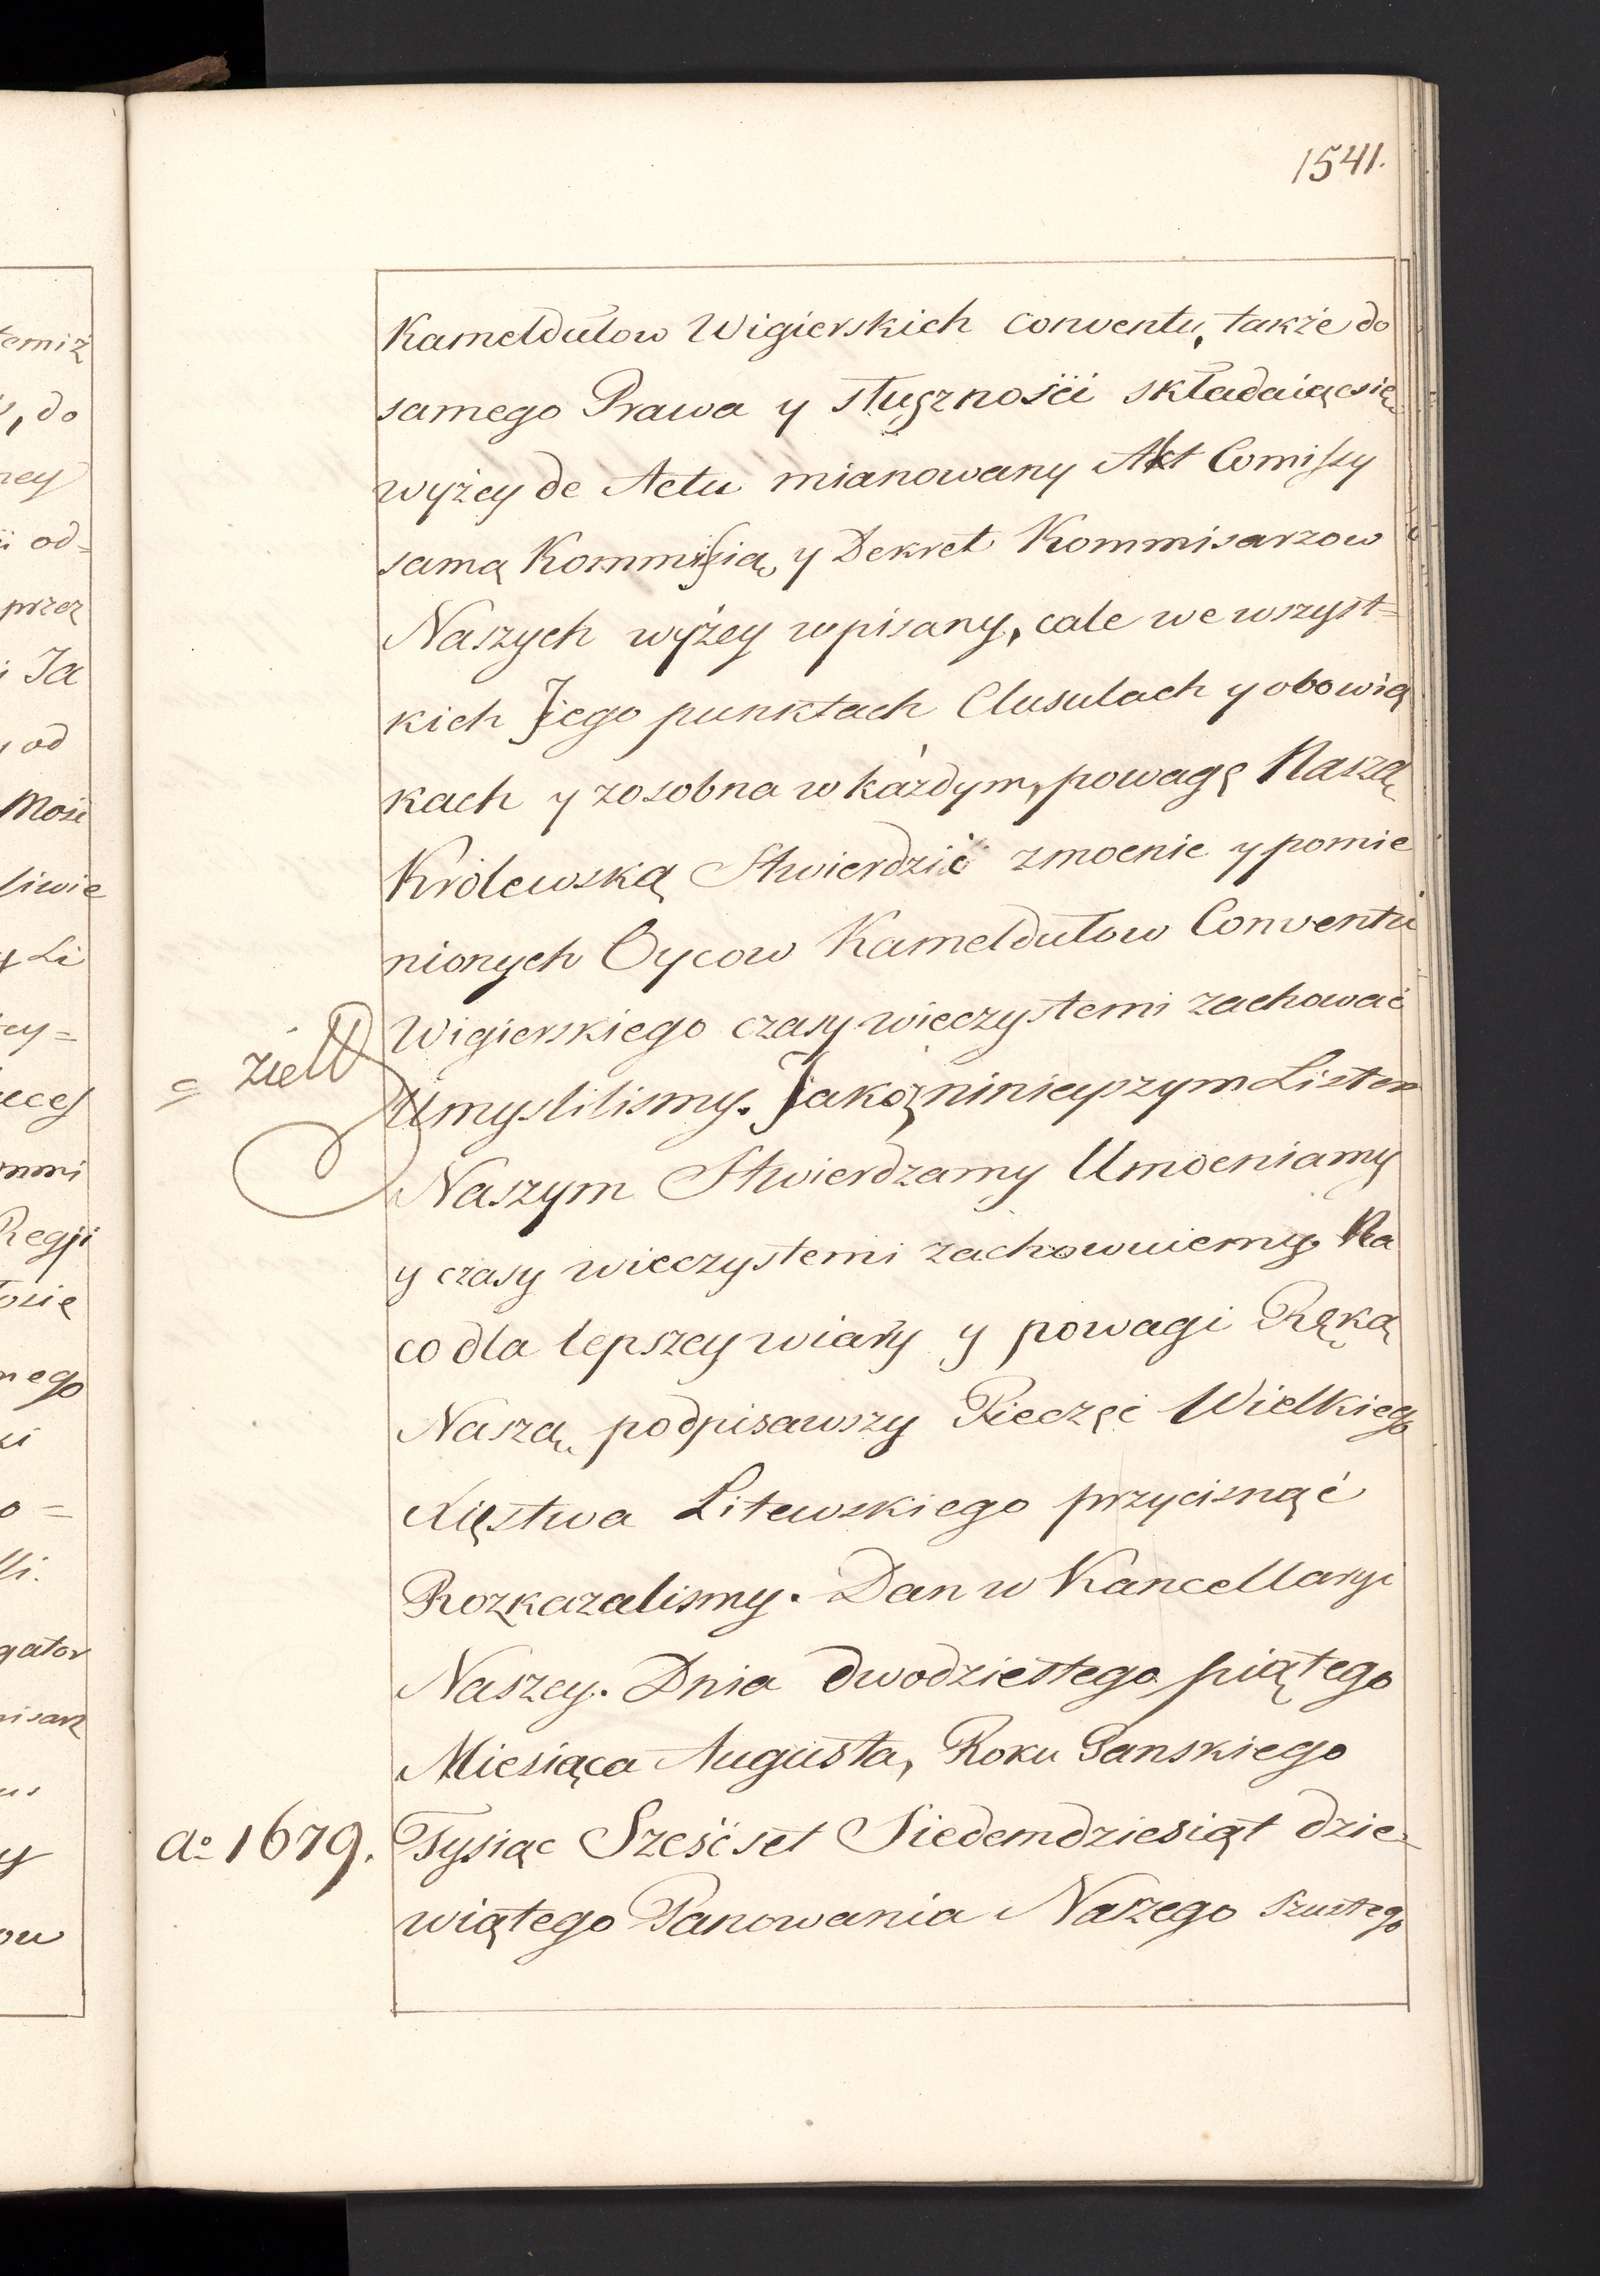 1541.
Kameldułow Wigierskich conventu, także do
samego Prawa y słusznośći składaiąc się
wyżey de Actu mianowany Akt Comissy
samą Kommissią, y Dekret Kommisarzow
Naszych wyżey wpisany, cale we wszyst=
kich Jego punktach Clusulach y obowią
kach y zosobna w każdym, powagę Naszą
Królewską Stwierdzić zmocnie y pomie
nionych Oycow Kameldułow Conventu
Wigierskiego czasy wieczystemi zachować
Umyslilismy. Jakoż ninieyszym Listem
Naszym Stwierdzamy Umocniamy
y czasy wieczystemi zachowuiemy. Na
co dla lepszey wiary y powagi Ręką
Naszą podpisawszy Pieczęć Wielkiego
Xięstwa Litewskiego przycisnąć
Rozkazalismy. Dan w Kancellaryi
Naszey. Dnia dwodziestego piątego
Miesiąca Augusta, Roku Panskiego
ao 1679. Tysiąc Sześćset Siedemdziesiąt dzie=
wiątego Panowania Naszego szustego
temiż
, do
ney
od=
przez
Ja
od
Mosi
liwie
y Li
cy=
mmi
Regji
osię
nego
gator
nisarz